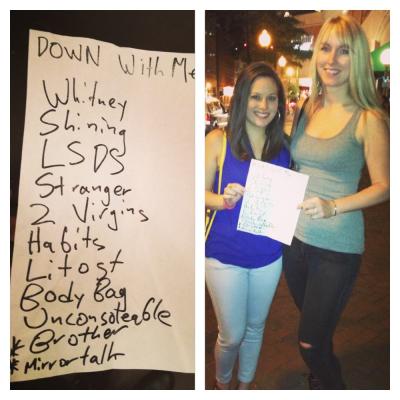 DOWN With Me
Whitney
Shining
LSDS
Stranger
2 Virgins
Habits
Litost
Body Bag
Unconsoleable
* Brother
* Mirrortalk